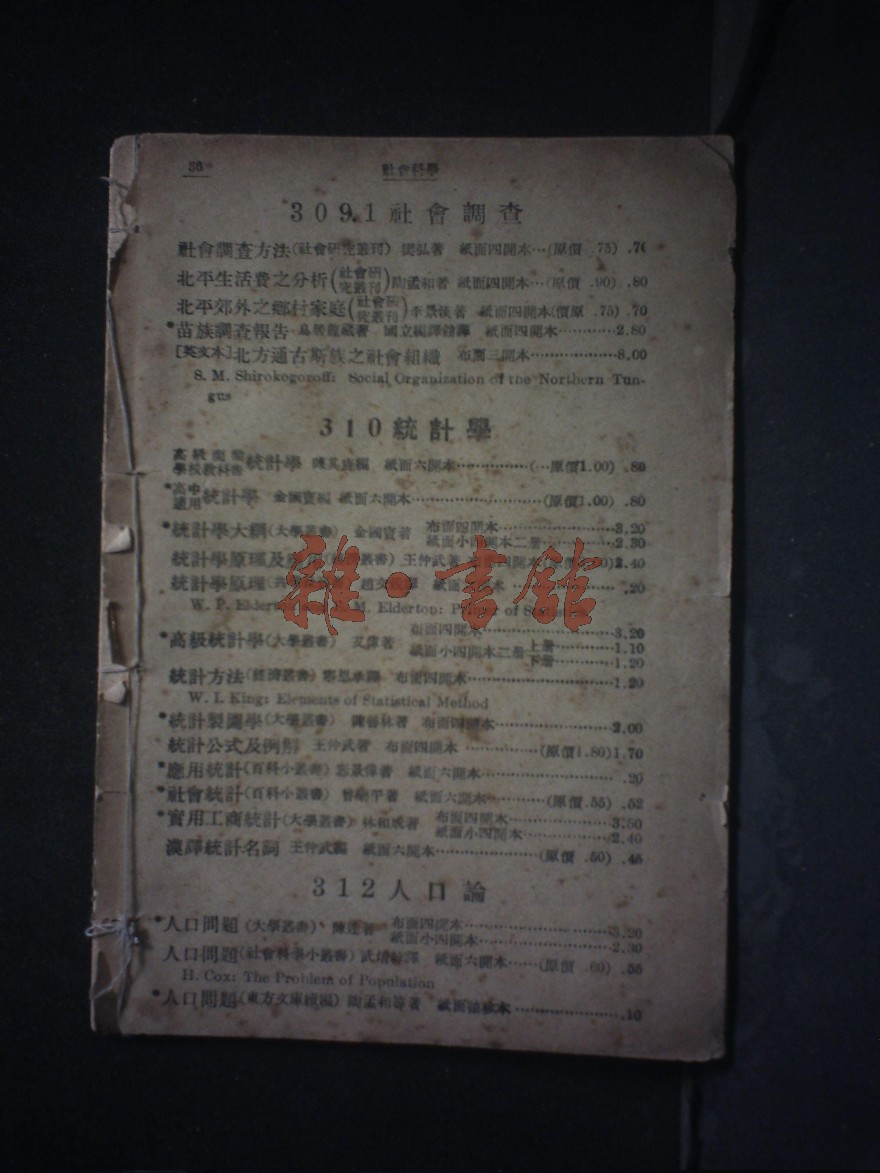 36 社會科學
309.1 社會調查
社會調查方法(社會研究叢刊) 樊弘著 紙面四開本…(原價 .75) .70
北平生活費之分析(社會研究叢刊)陶孟和著 紙面四開本…(原價 .90) .80
北平郊外之鄉村家庭(社會研究叢刊)李景漢著 紙面四開本(價原 .75) .70
*苗族調查報告 鳥居龍藏著 國立編譯館譯 紙面四開本…………2.80
[英文本]北方通古斯族之社會組織 布面三開本…………8.00
S. M. Shirokogoroff: Social Organization of the Northern Tun-
gus
310 統計學
高級商業學校教科書 統計學 紙面六開本…………(…原價1.00) .80
*高中適用 統計學 金國寶編 紙面六開本…………(原價1.00) .80
*統計學大綱(大學叢書) 金國寶著 布面四開本…………3.20
紙面小四開本二册…………2.30
統計學原理及 王仲武著 2.40
統計學原理 趙文 .20
W. P. Elderton M. Elderton: Primer of Statistics
*高級統計學(大學叢書) 艾偉著 布面四開本…………3.20
紙面小四開本二册 上册…………1.10
下册…………1.20
統計方法(經濟叢書) 布面四開本…………1.20
W. I. King: Elements of Statistical Method
*統計製圖學(大學叢書) 陳善林著 布面四開本…………2.00
統計公式及例解 王仲武著 布面四開本…………(原價1.80)1.70
*應用統計(百科小叢書) 紙面六開本………….20
*社會統計(百科小叢書) 紙面六開本…………(原價 .55) .52
*實用工商統計(大學叢書) 林和成著 布面四開本…………3.50
紙面小四開本…………2.40
漢譯統計名詞 王仲武編 紙面六開本…………(原價 .50) .45
312 人口論
*人口問題(大學叢書) 陳達著 布面四開本…………3.20
紙面小四開本…………2.30
人口問題(社會科學小叢書) 武堉幹譯 紙面六開本……(原價 .60) .55
H. Cox: The Problem of Population
*人口問題(東方文庫續編) 陶孟和等著 紙面袖珍本………….10
雜·書館